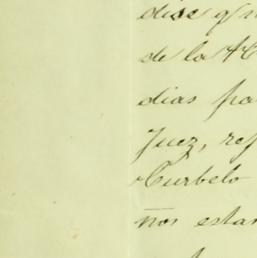 dise q
de la
dias pa
Juez, ref
Curbelo
nos estan